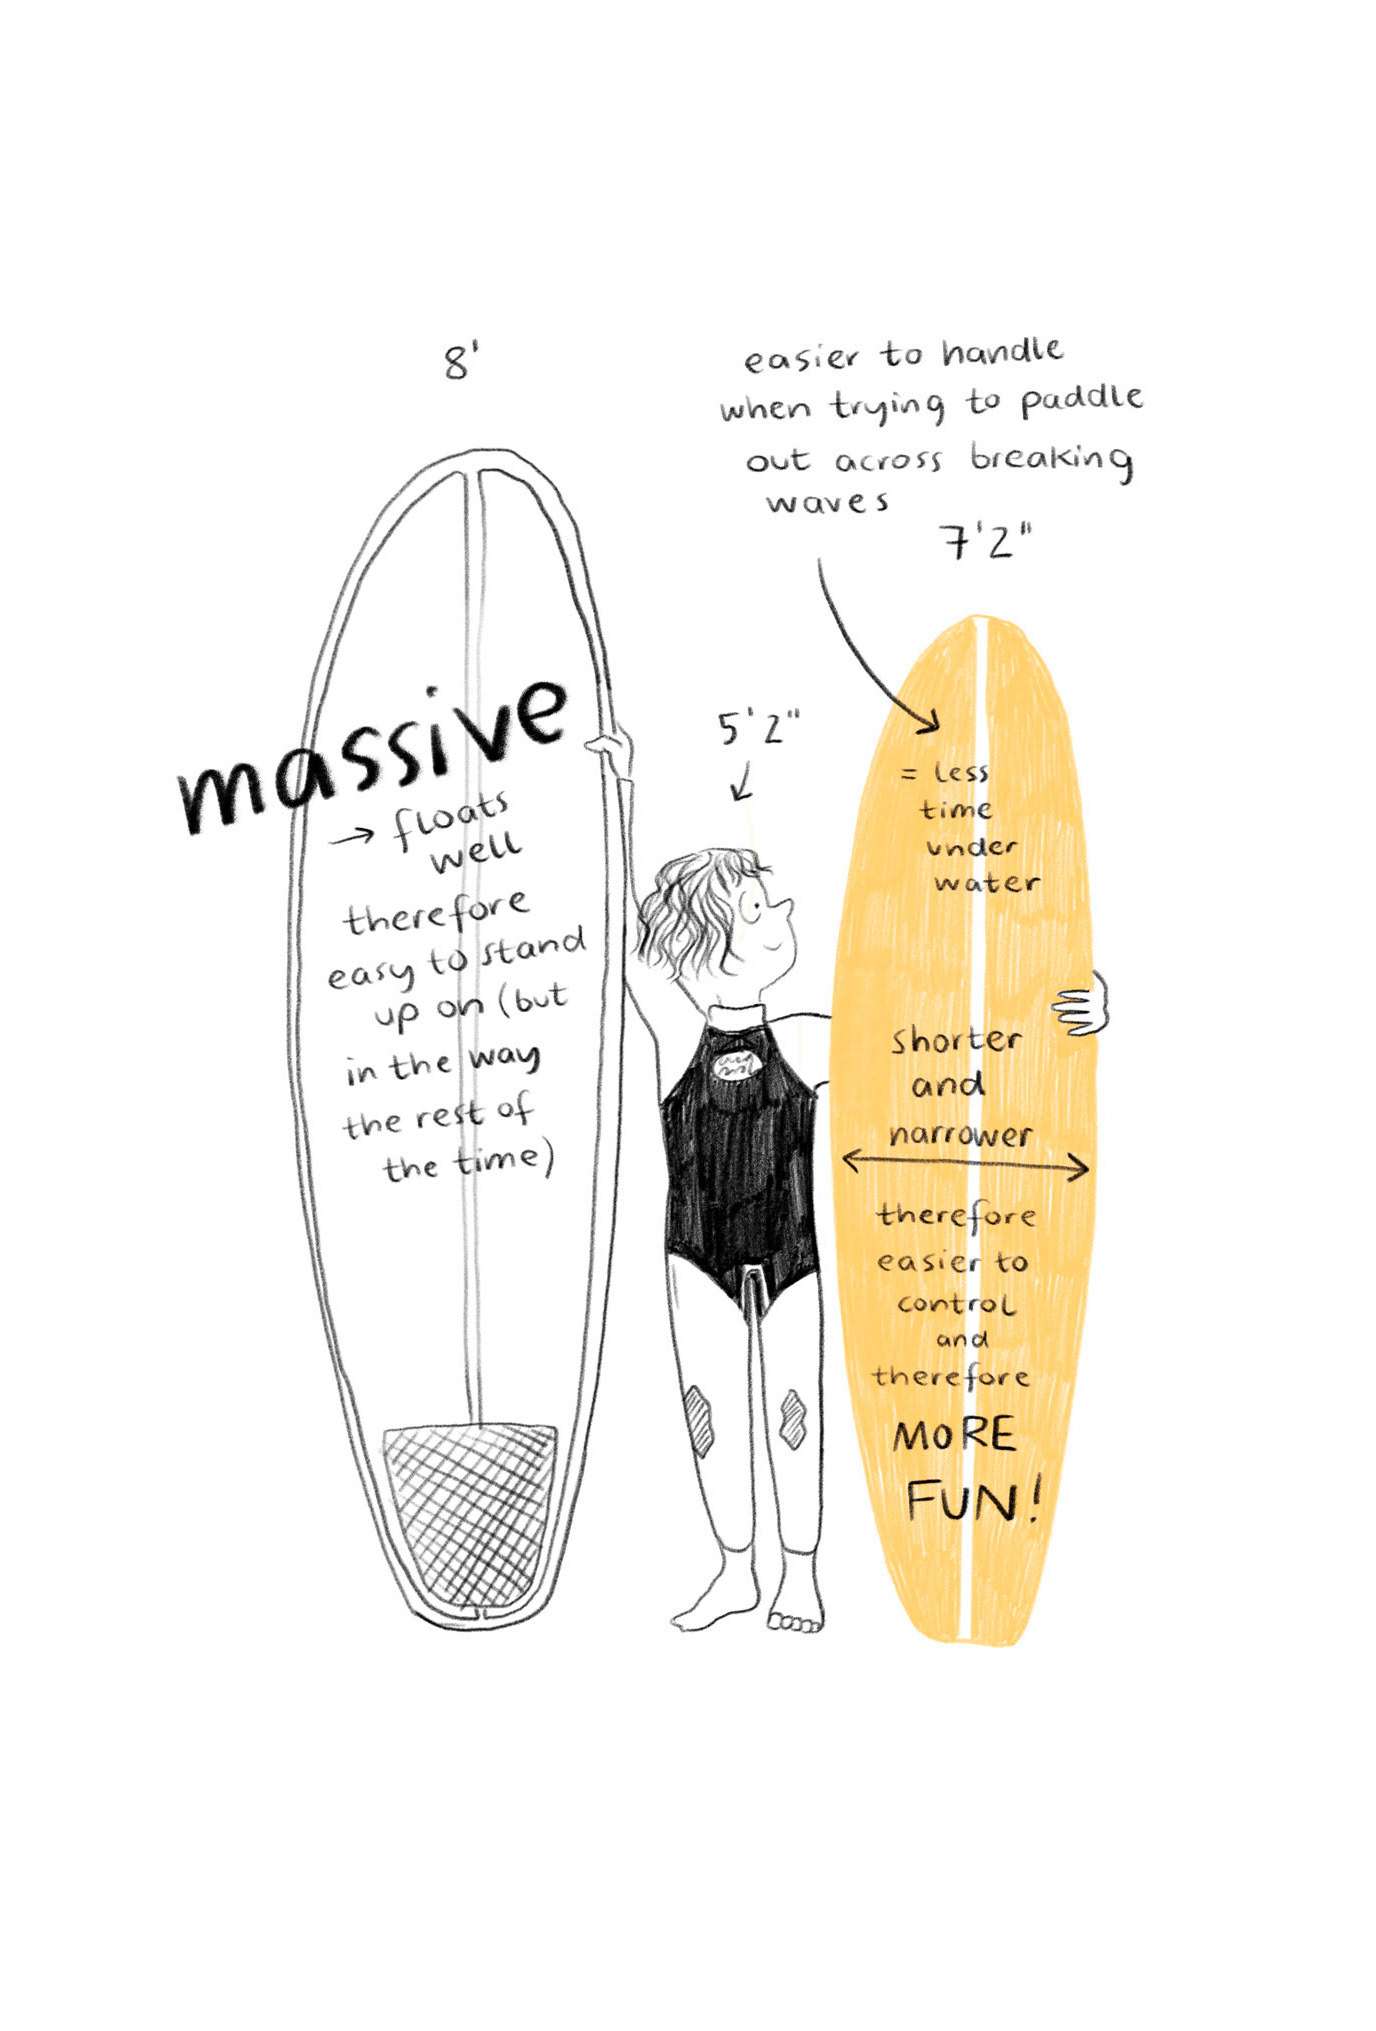 8'
massive
→ floats
well
therefore
easy to stand
up on (but
in the way
the rest of
the time)
5'2"
easier to handle
when trying to paddle
out across breaking
waves
7'2"
= less
time
under
water
shorter
and
narrower
therefore
easier to
control
and
therefore
MORE
FUN!